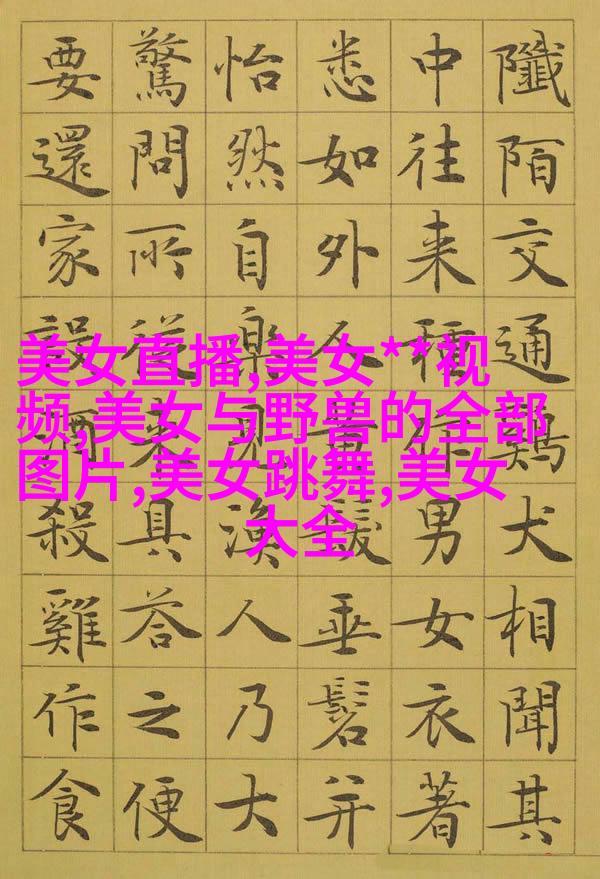 陌交通鷄犬相聞其
中往来種作男女衣著
悉如外人黃髮垂髫并
怡然自樂見漁人乃大
驚問所從来具荅之便
要還家設酒殺雞作食
美女直播,美女**视
频,美女与野兽的全部
图片,美女跳舞,美女
大全